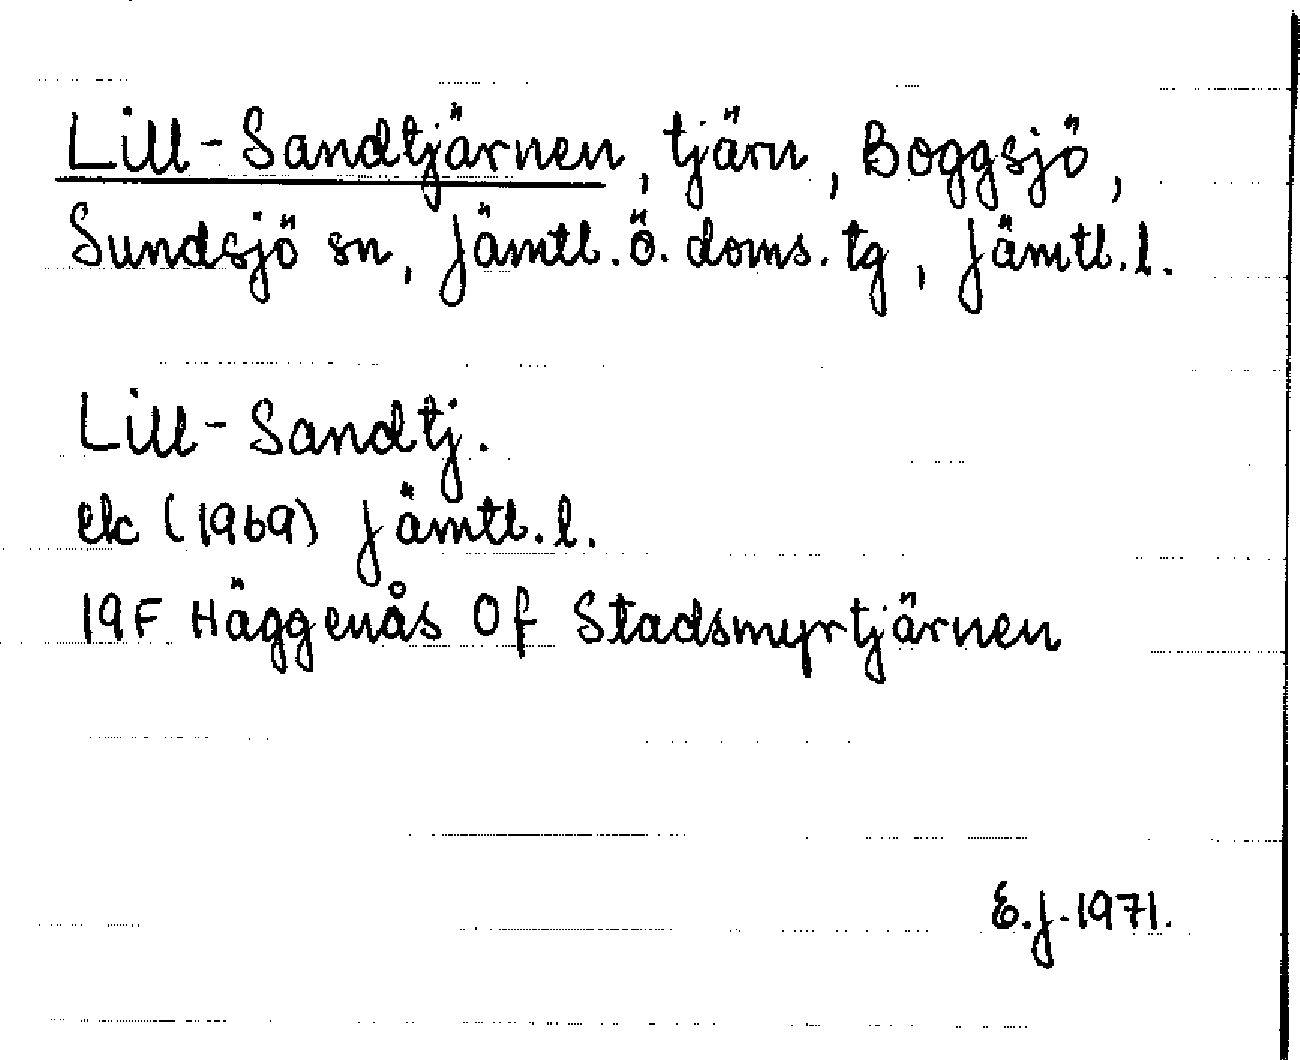 Lill-Sandtjärnen, tjärn, Boggsjö,
Sundsjö sn, Jämtl. Ö. doms. tg, Jämtl. l.
Lill-Sandtj.
ek (1969) Jämtl. l.
19F Häggenås 0f Stadsmyrtjärnen
E.J. 1971.